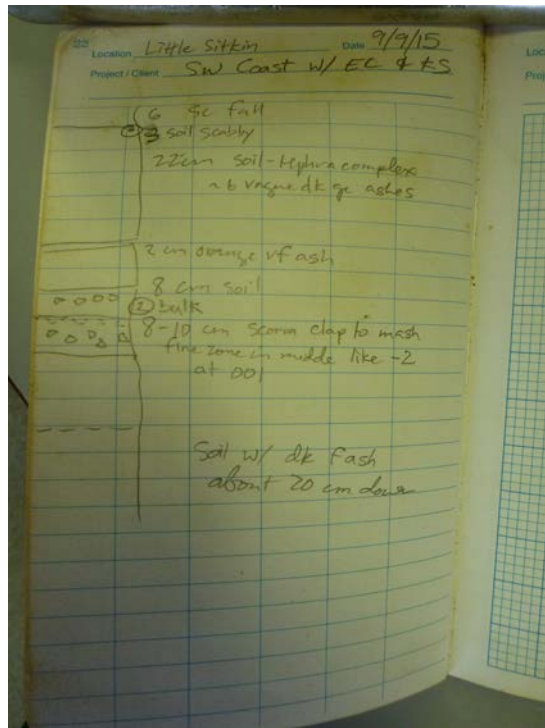 22
Location Little Sitkin Date 9/9/15
Project / Client SW Coast w/ EC & KS
6 fall
3 soil scabby
22cm soil-tephra complex
~6 vague dk ashes
2 cm orange vf ash
8 cm soil
② bulk
8-10 cm lap to mash
fine zone in middle like -2
at 001
Soil w/ dk Fash
about 20 cm down
Loc
Proj